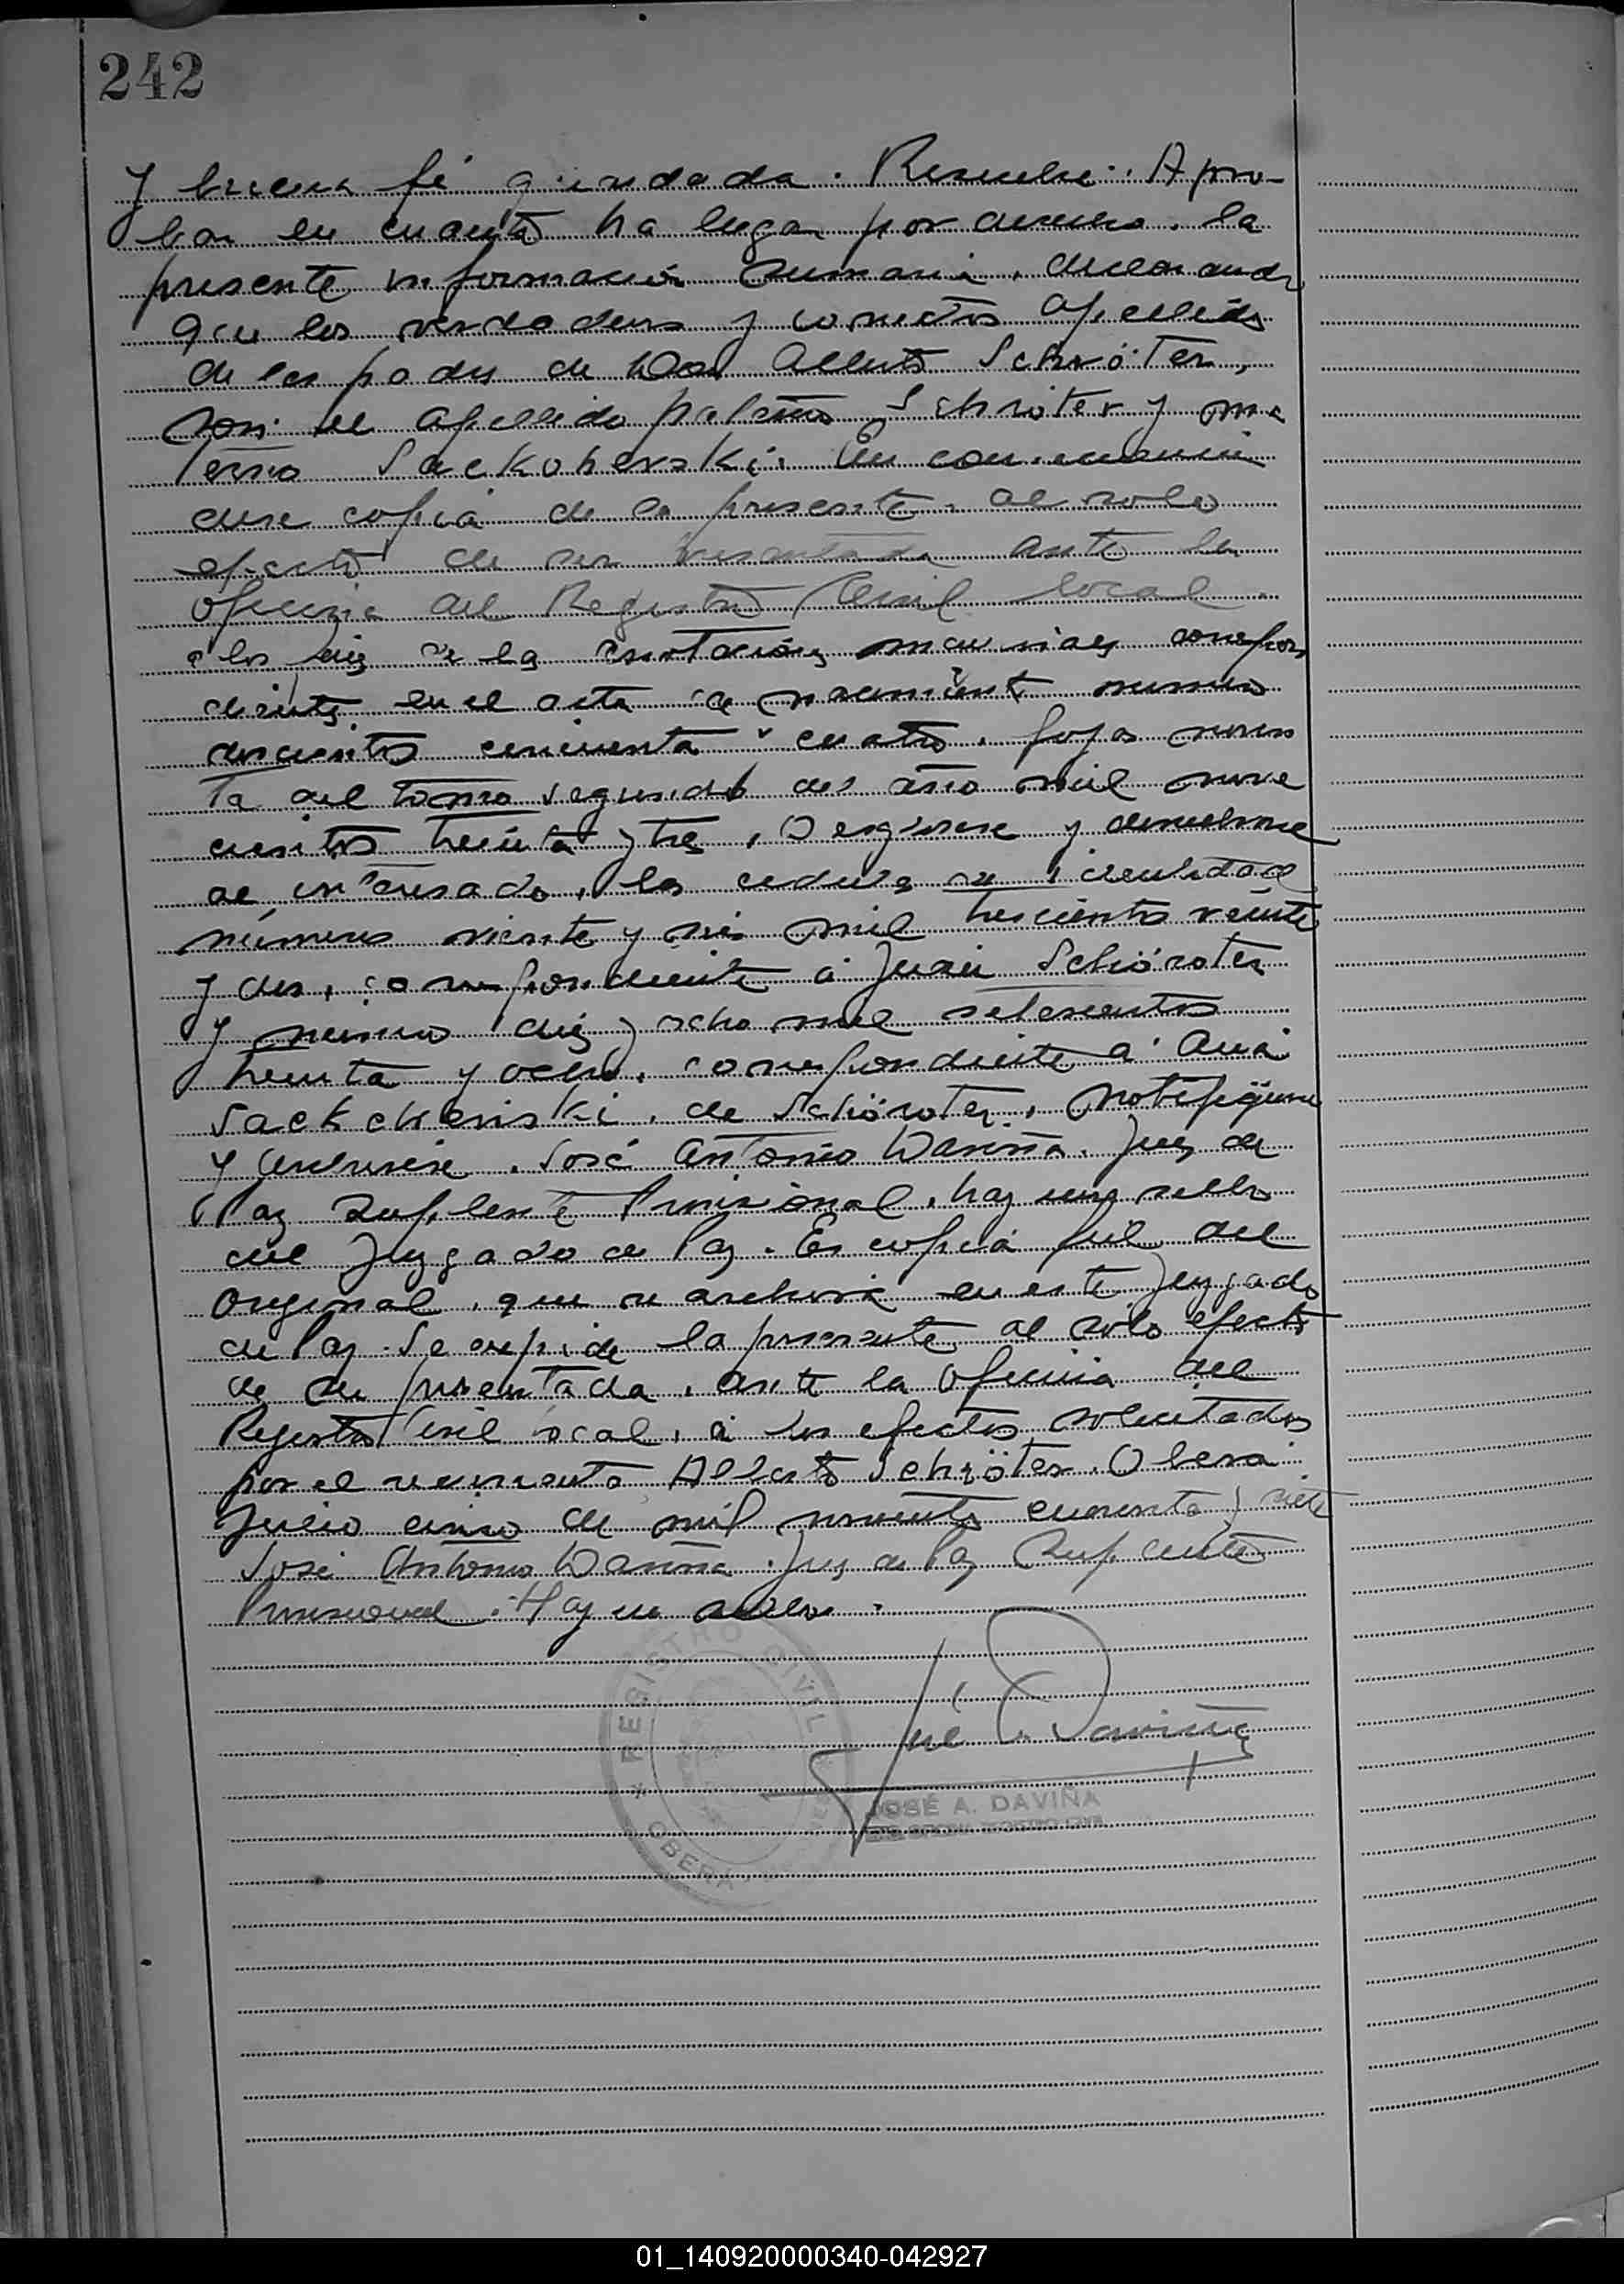 242
y buena fé guardada. Resuelve: Apro-
bar en cuanto ha lugar por derecho, la
presente información sumaria, declarando
que los verdaderos y correctos apellidos
de los padres de Don Alberto Schröter,
son: el apellido paterno Schröter y ma
terno Sackcherski. En consecuencia
dese copia de la presente, al solo
efecto de ser presentada ante la
oficina del Registro Civil local,
a los fines de la anotación marginal correspon
diente, en el acta de nacimiento numero
doscientos cincuenta y cuatro, fojas noven
ta del tomo segundo del año mil nove
cientos treinta y tres. Desglosese y devuelvase
al interesado, las cedulas de identidad
número veinte y seis mil trescientos veinte
y dos, correspondiente a Juan Schöroter
y numero diez y ocho mil setescientos
treinta y ocho, correspondiente a Ana
Sackcheriski, de Schöroter, notifíquese
y archivese. José Antonio Daviña. Juez de
Paz Suplente Provisional, hay un sello
del Juzgado de Paz. Es copia fiel del
original, que se archiva en este Juzgado
de Paz. Se expide la presente al sólo efecto
de ser presentada, ante la oficina del
Registro Civil local, a los efectos solicitados
por el recurrente Alberto Schröter. Oberá
Julio cinco de mil novecientos cuarenta y siete
José Antonio Daviña. Juez de Paz Suplente
Provisional. Hay un sello.
REGISTRO CIVIL
OBERÁ
José A. Daviña
JOSÉ A. DAVIÑA
01_140920000340-042927